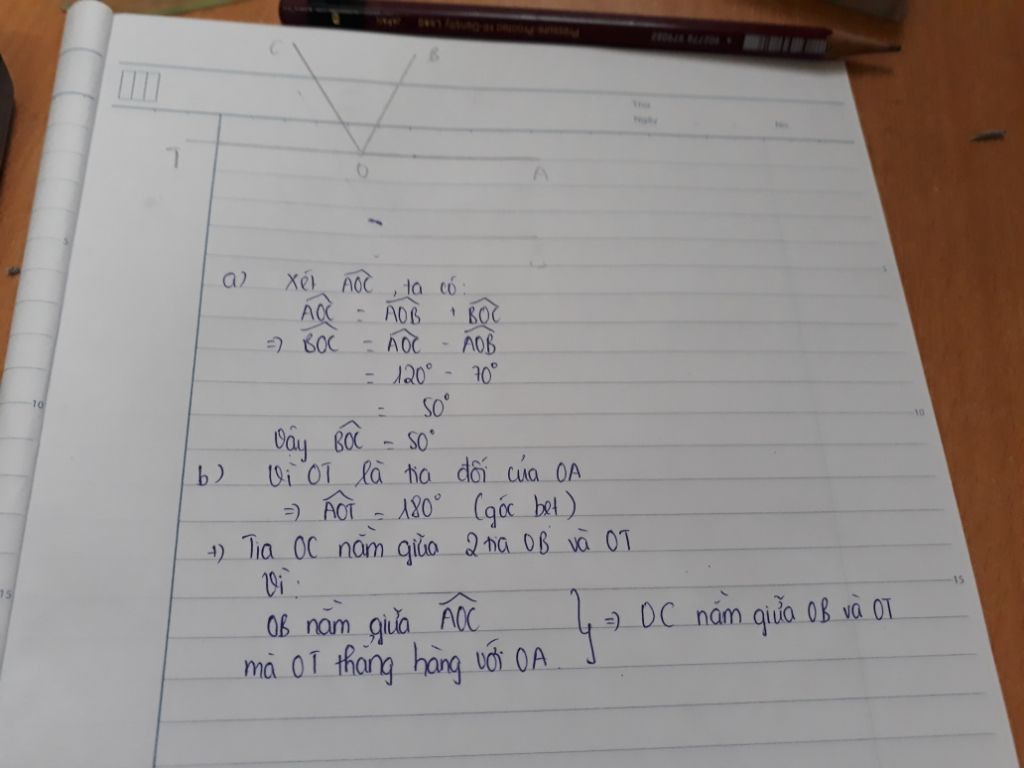 C
B
Thứ
Ngày
No
T
O
A
a) Xét AOC, ta có:
AOC = AOB + BOC
=> BOC = AOC - AOB
= 120° - 70°
= 50°
Vậy BOC = 50°
b) Vì OT là tia đối của OA
=> AOT = 180° (góc bet)
+) Tia OC nằm giữa 2 tia OB và OT
Vì:
OB nằm giữa AOC
mà OT thẳng hàng với OA.
=> OC nằm giữa OB và OT
5
10
15
5
10
15